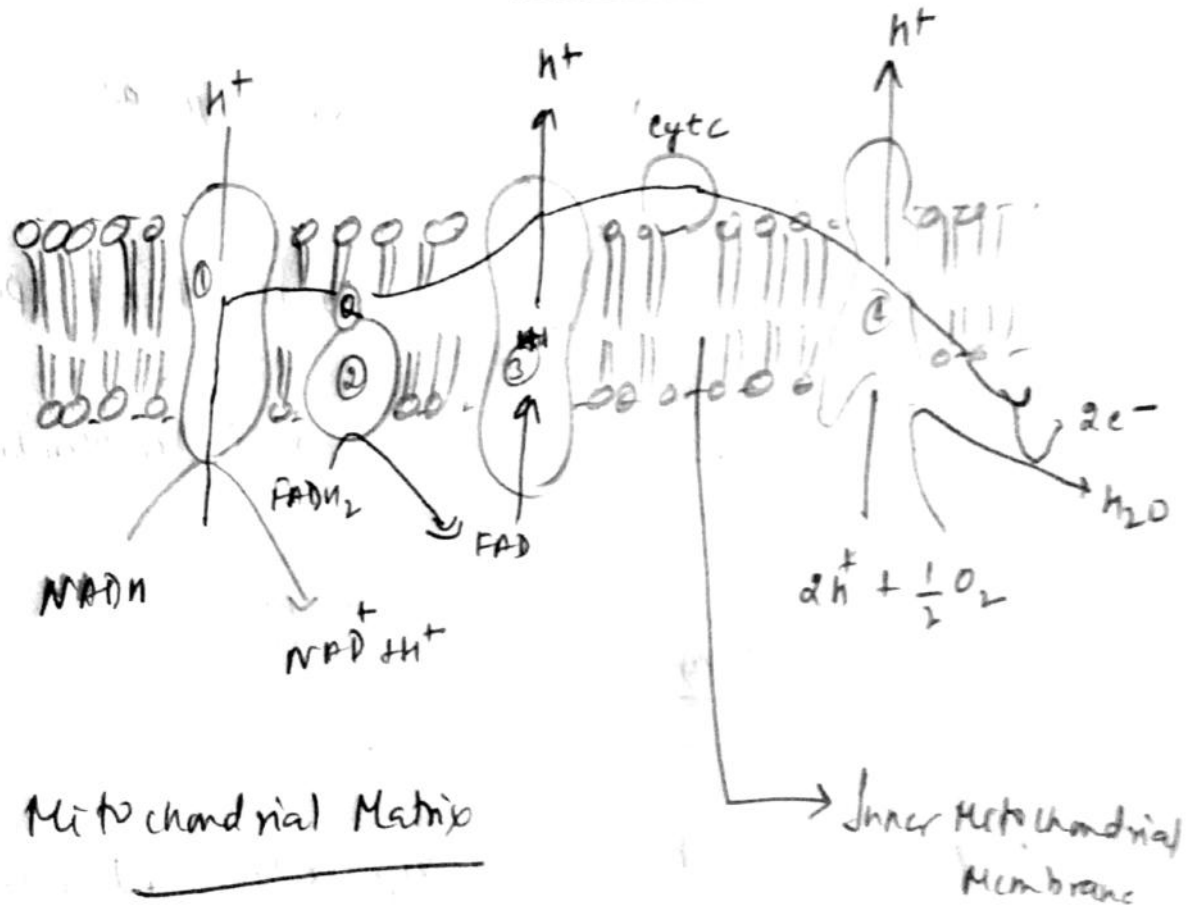 h+
h+
h+
cytc
①
Q
②
③
2e-
FADH2
FAD
H2O
NADH
2h+ + 1/2 O2
NAD+ +H+
Mitochondrial Matrix
Inner Mitochondrial
Membrane